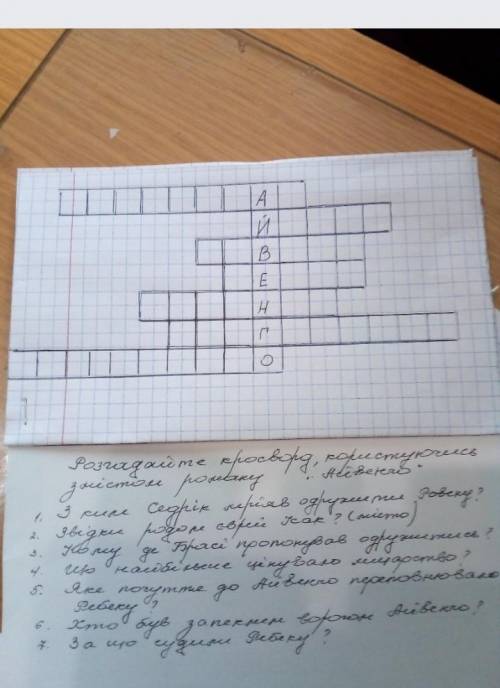 А
Й
В
Е
Н
Г
О
Розгадайте кросворд, користуючись
змістом роману "Айвенго"
1. З ким Седрік мріяв одружити Ровену?
2. Звідки родом єврей Ісак? (місто)
3. Кому де Брасі пропонував одружитись?
4. Що найбільше цінувало лицарство?
5. Яке почуття до Айвенго переповнювало
Ребеку?
6. Хто був запеклим ворогом Айвенго?
7. За що судили Ребеку?